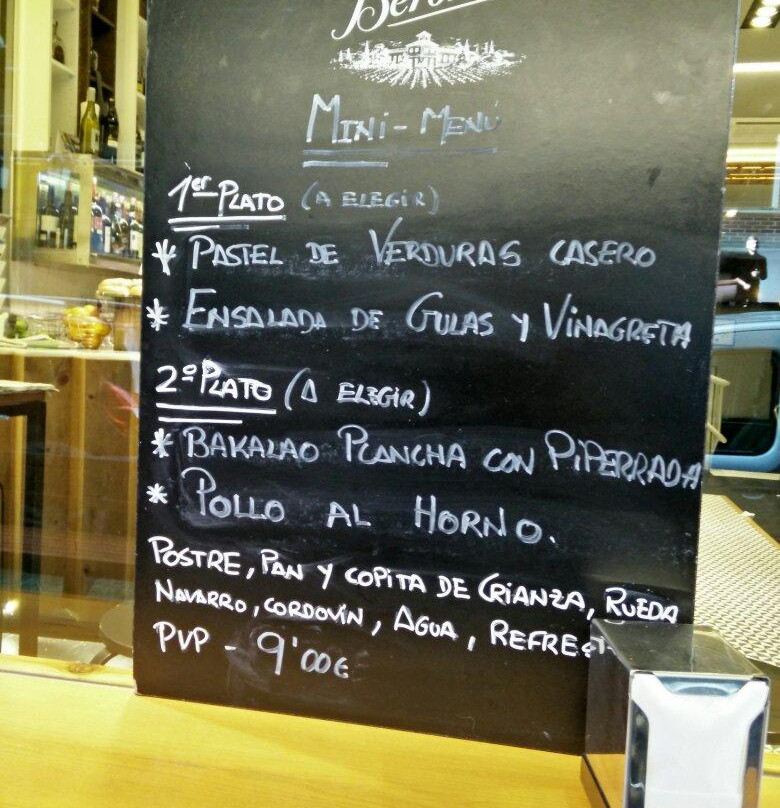 MINI - MENÚ
1er PLATO (A ELEGIR)
* PASTEL DE VERDURAS CASERO
* ENSALADA DE GULAS Y VINAGRETA
2º PLATO (A ELEGIR)
* BAKALAO PLANCHA CON PIPERRADA
* POLLO AL HORNO.
POSTRE, PAN Y COPITA DE CRIANZA, RUEDA
NAVARRO, CORDOVÍN, AGUA,
PVP - 9'00€